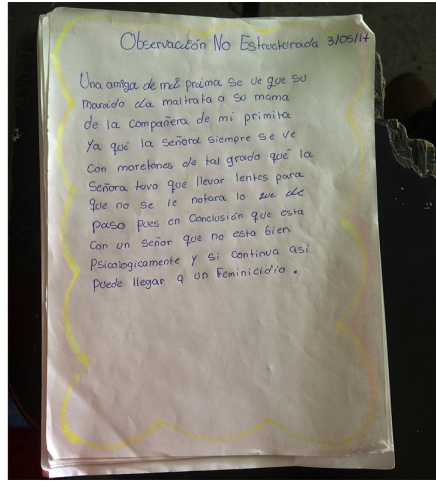 Observación No Estructurada 3/05/17
Una amiga de mi prima se ve que su
marido la maltrata a su mama
de la compañera de mi primita
Ya qué la señora siempre se ve
Con moretones de tal grado qué la
Señora tuvo que llevar lentes para
que no se le notara lo que le
paso pues en conclusión que esta
Con un señor que no esta bien
Psicologicamente y si continua asi
Puede llegar a un Feminicidio.